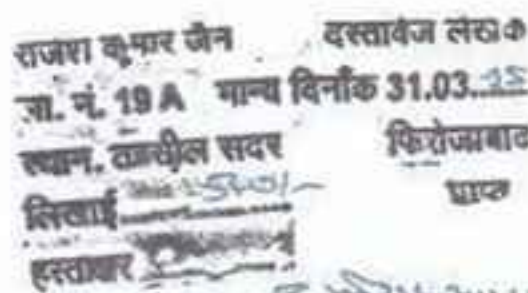 राजेश कुमार जैन दस्तावेज लेखक
ला. नं. 19 A मान्य दिनाँक 31.03.15
स्थान. तहसील सदर फिरोजाबाद
लिखाई प्राप्त
हस्ताक्षर